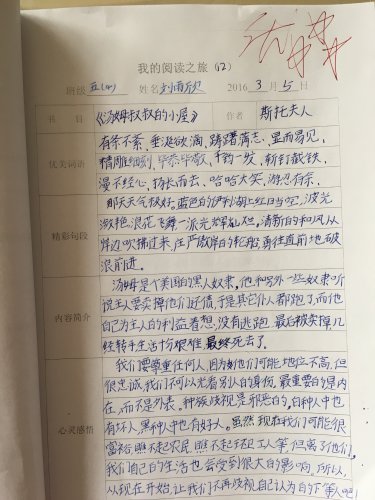 优
我的阅读之旅(12)
班级 五(4) 姓名 2016 3 月 5 日
书 目 《汤姆叔叔的小屋》 作者 斯托夫人
优美词语
有条不紊、垂涎欲滴、踌躇满志、显而易见、
精雕细刻、毕恭毕敬、千钧一发、斩钉截铁、
漫不经心、扬长而去、哈哈大笑、游忍有余、
精彩句段
那天天气极好,白色的伊利湖上红日当空,波光
潋艳,浪花飞舞,一派光辉灿烂。清新的和风从
岸边吹拂过来,庄严傲岸的轮船勇往直前地破
浪前进。
内容简介
汤姆是个美国的黑人奴隶,他和另外一些奴隶听
说主人要卖掉他们还债,于是其它仆人都跑了,而他
自己为主人的利益着想,没有逃跑,最后被卖掉,几
经转手,生活十分艰难,最终死去了。
心灵感悟
我们要尊重任何人,因为如他们可能地位不高,但
很忠诚,我们不可以光看别人的身份,最重要的是内
在,而不是外表。种族歧视是邪恶的,白种人中也
有坏人,黑种人中也有好人。虽然现在我们可能很
富裕,瞧不起农民、瞧不起环卫工人等,但离了他们,
我们自己的生活也会受到很大的影响,所以,
从现在开始,让我们不再歧视自己认为的下等人吧!